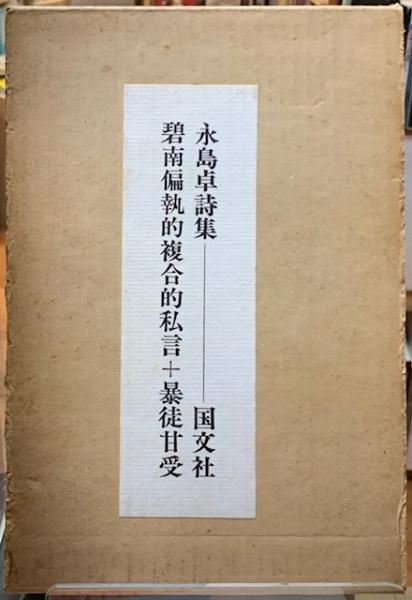 永島卓詩集――――国文社
碧南偏執的複合的私言＋暴徒甘受